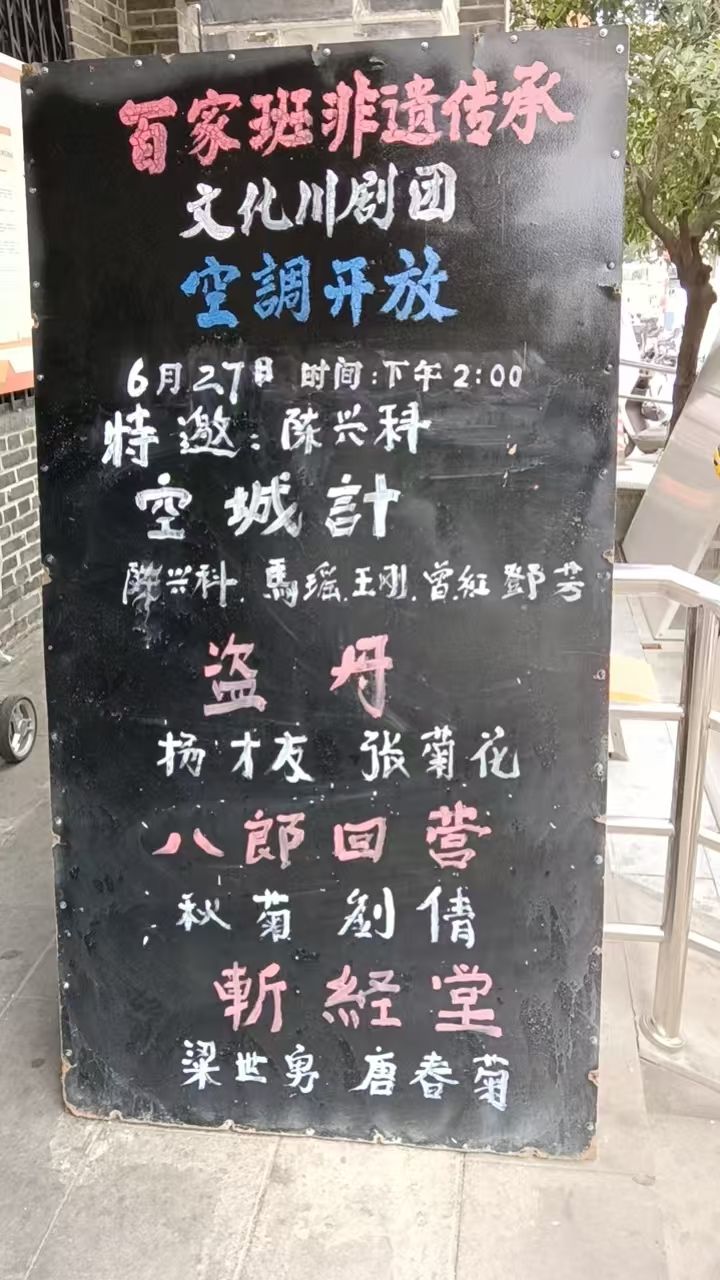 百家班非遗传承
文化川剧团
空調开放
6月27日 时间:下午2:00
特邀:陈兴科
空城計
陳兴科.馬瑶.王刚.曾紅鄧芳
盗丹
扬才友 张菊花
八郎回营
秋菊 劉倩
斬経堂
梁世男 唐春菊